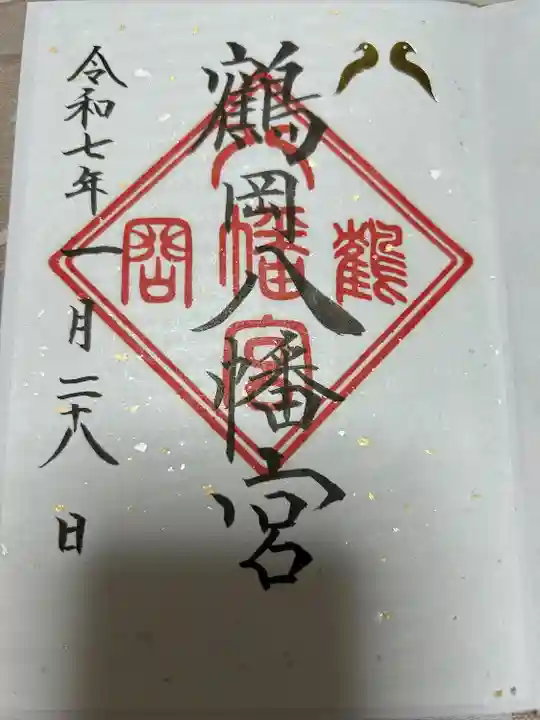 鶴岡八幡宮
鶴岡八幡宮
令和七年一月二十八日